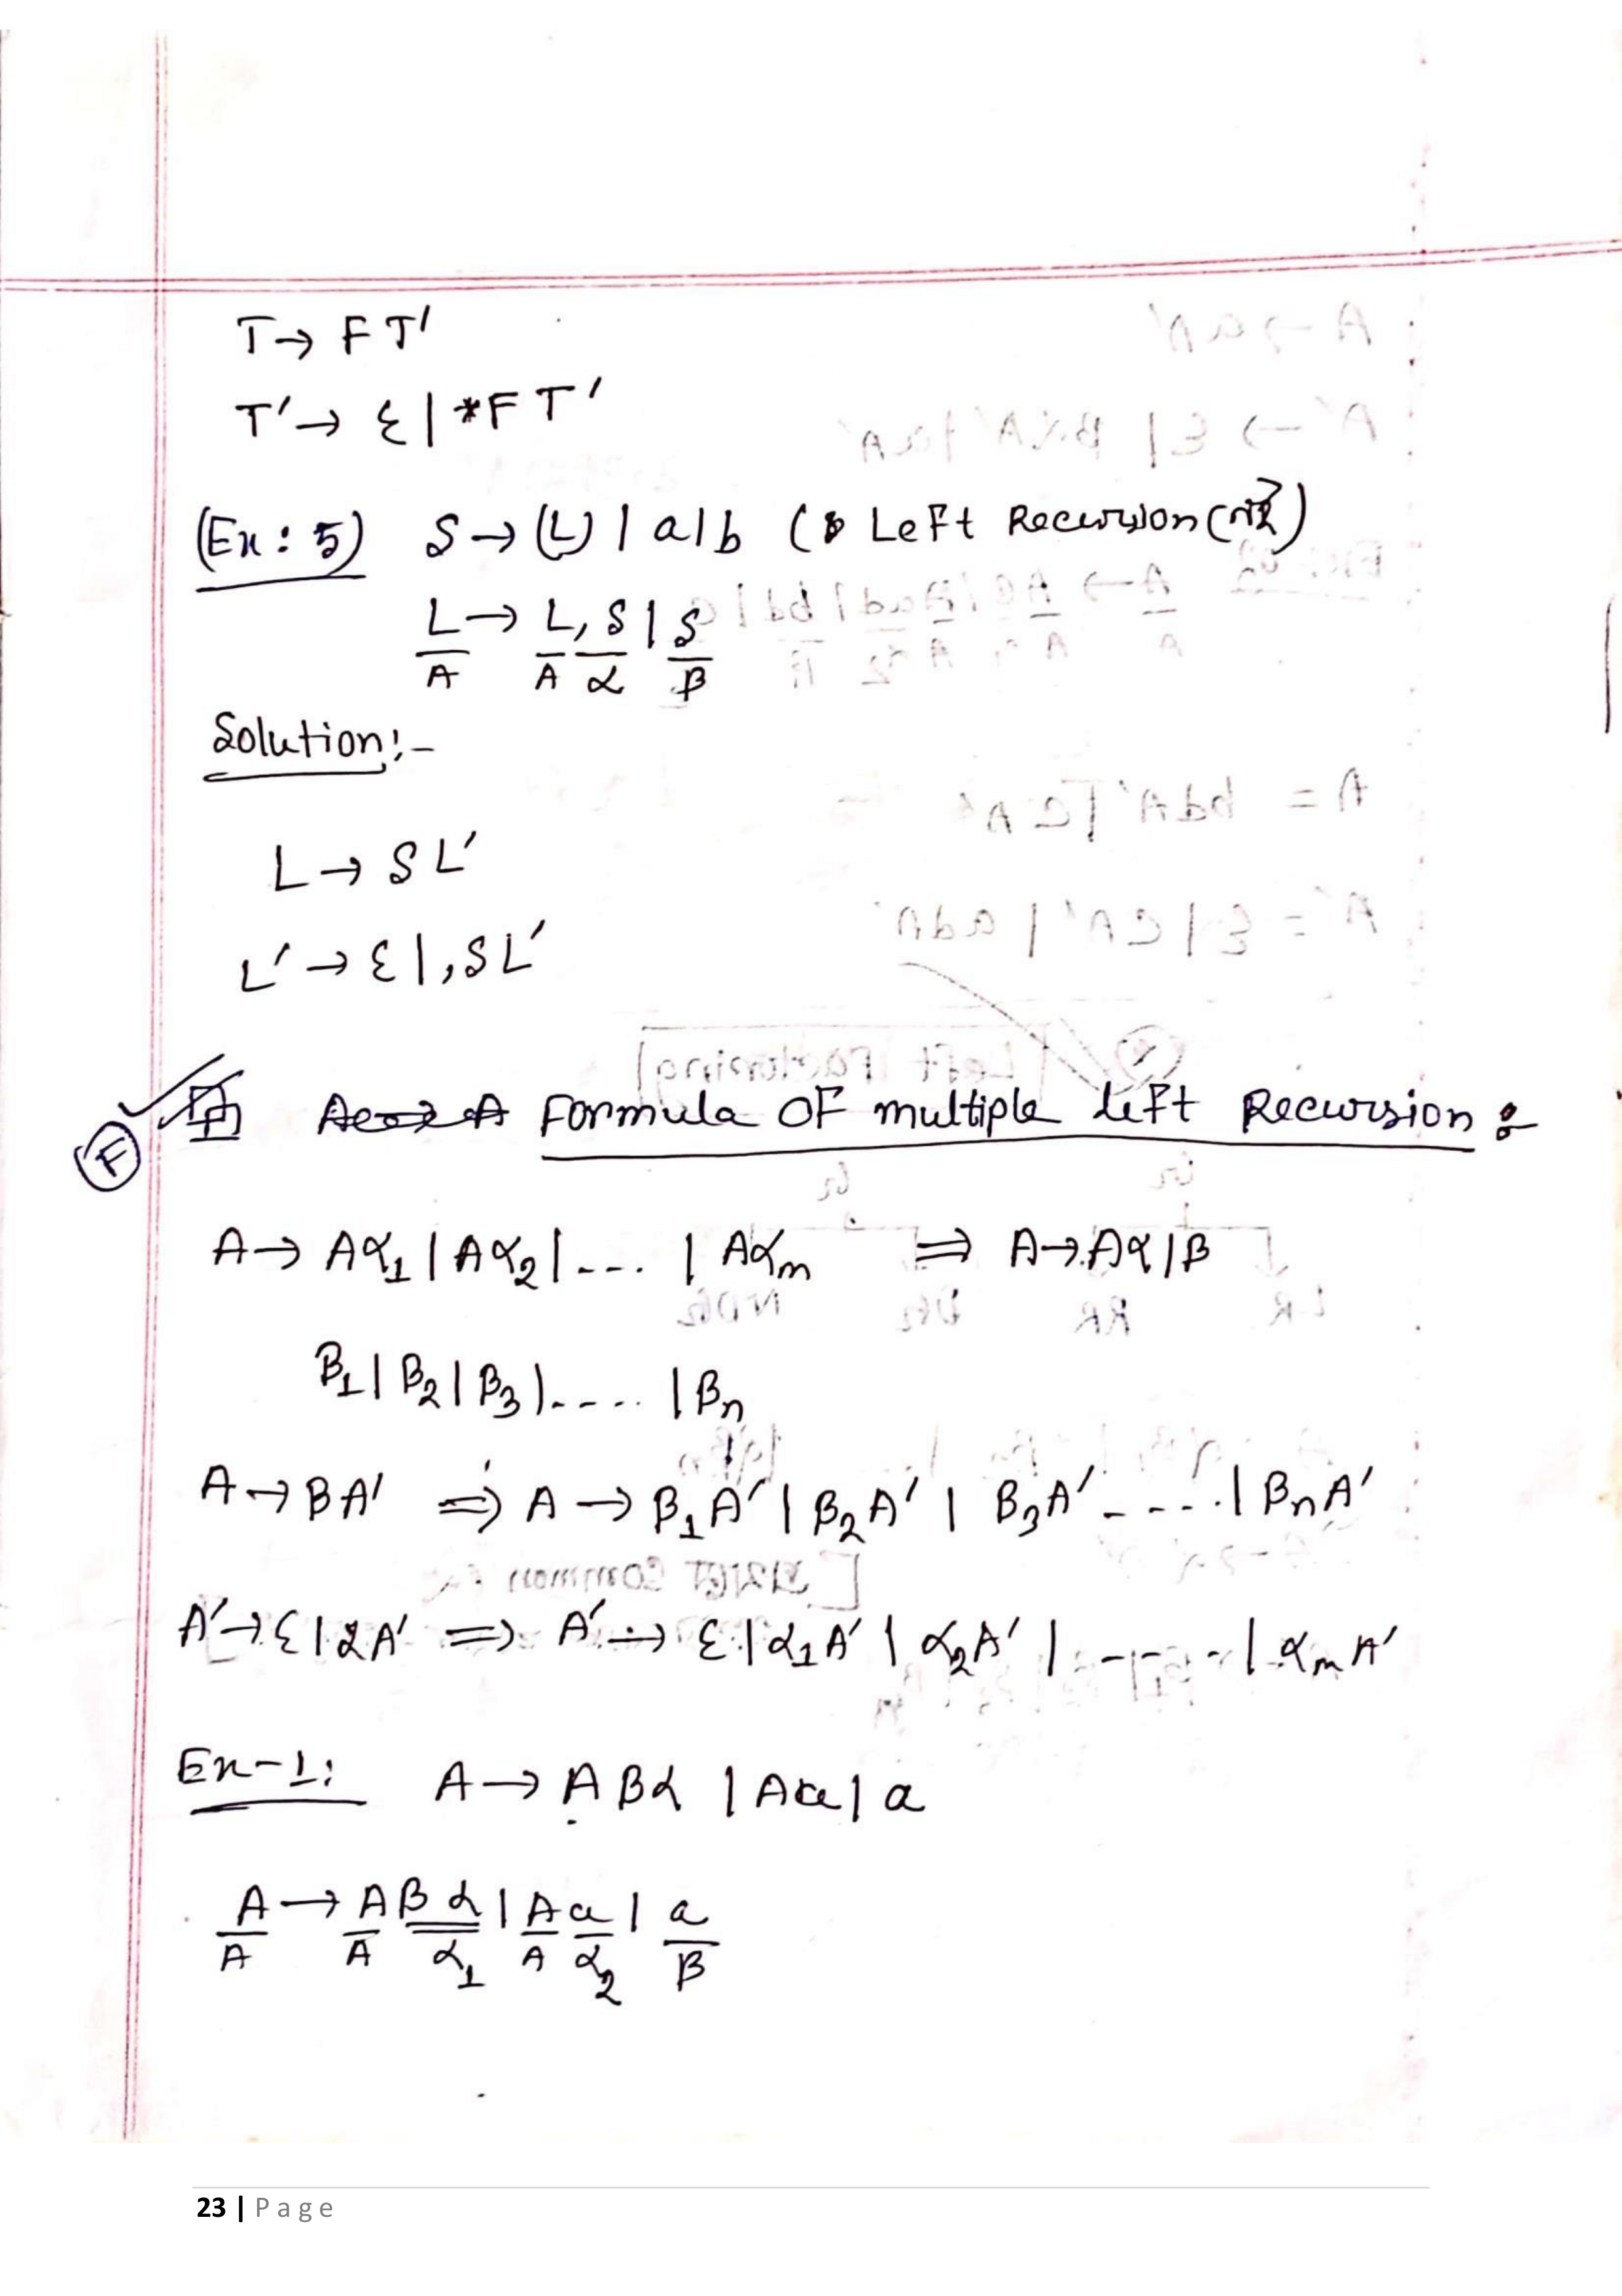 T → FT'
T' → ε | *FT'
(Ex: 5) S → (L) | a | b ( Left Recursion (নাই)
L → L, S | S
A A α β
Solution:-
L → SL'
L' → ε | ,SL'
(F) Formula OF multiple left Recursion :
A → Aα₁ | Aα₂ | ---. | Aαm ⇒ A → Aα | β
β₁ | β₂ | β₃ | ---.. | βn
A → BA' ⇒ A → β₁A' | β₂A' | β₃A' ----. | βnA'
A' → ε | αA' ⇒ A' → ε | α₁A' | α₂A' | ----- | αmA'
Ex-1: A → ABα | Aa | a
A → ABα | Aa | a
A A α₁ A α₂ β
23 | Page